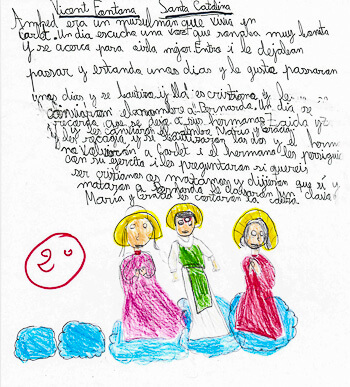 Vicent Fontana Santa Catalina
Amhed era un musulmán que vivia en
Carlet. Un dia escucha una voz que sonaba muy bonita
y se acerca para oirla mejor. Entra i le dejdean
passar y estando unos dias y le gusta pasaran
unos dias y se bautiza y ll'da es cristiano y le
canviaron el nombre a Bernardo. Un dia se
recorda que se dexa a sus hermanas Zoraida y
y les canviaron el nombre Maria y Gracia
recogía y se bautizaron las dos y el herm
no Volvieron a Carlet i el hermano les persiguio
con su ejercito i les preguntaron si quereis
ser cristianos os matamos y dijeron que si y
mataron a Bernardo le clavaron un clavo
Maria y Gracia les cortaron la cabeza